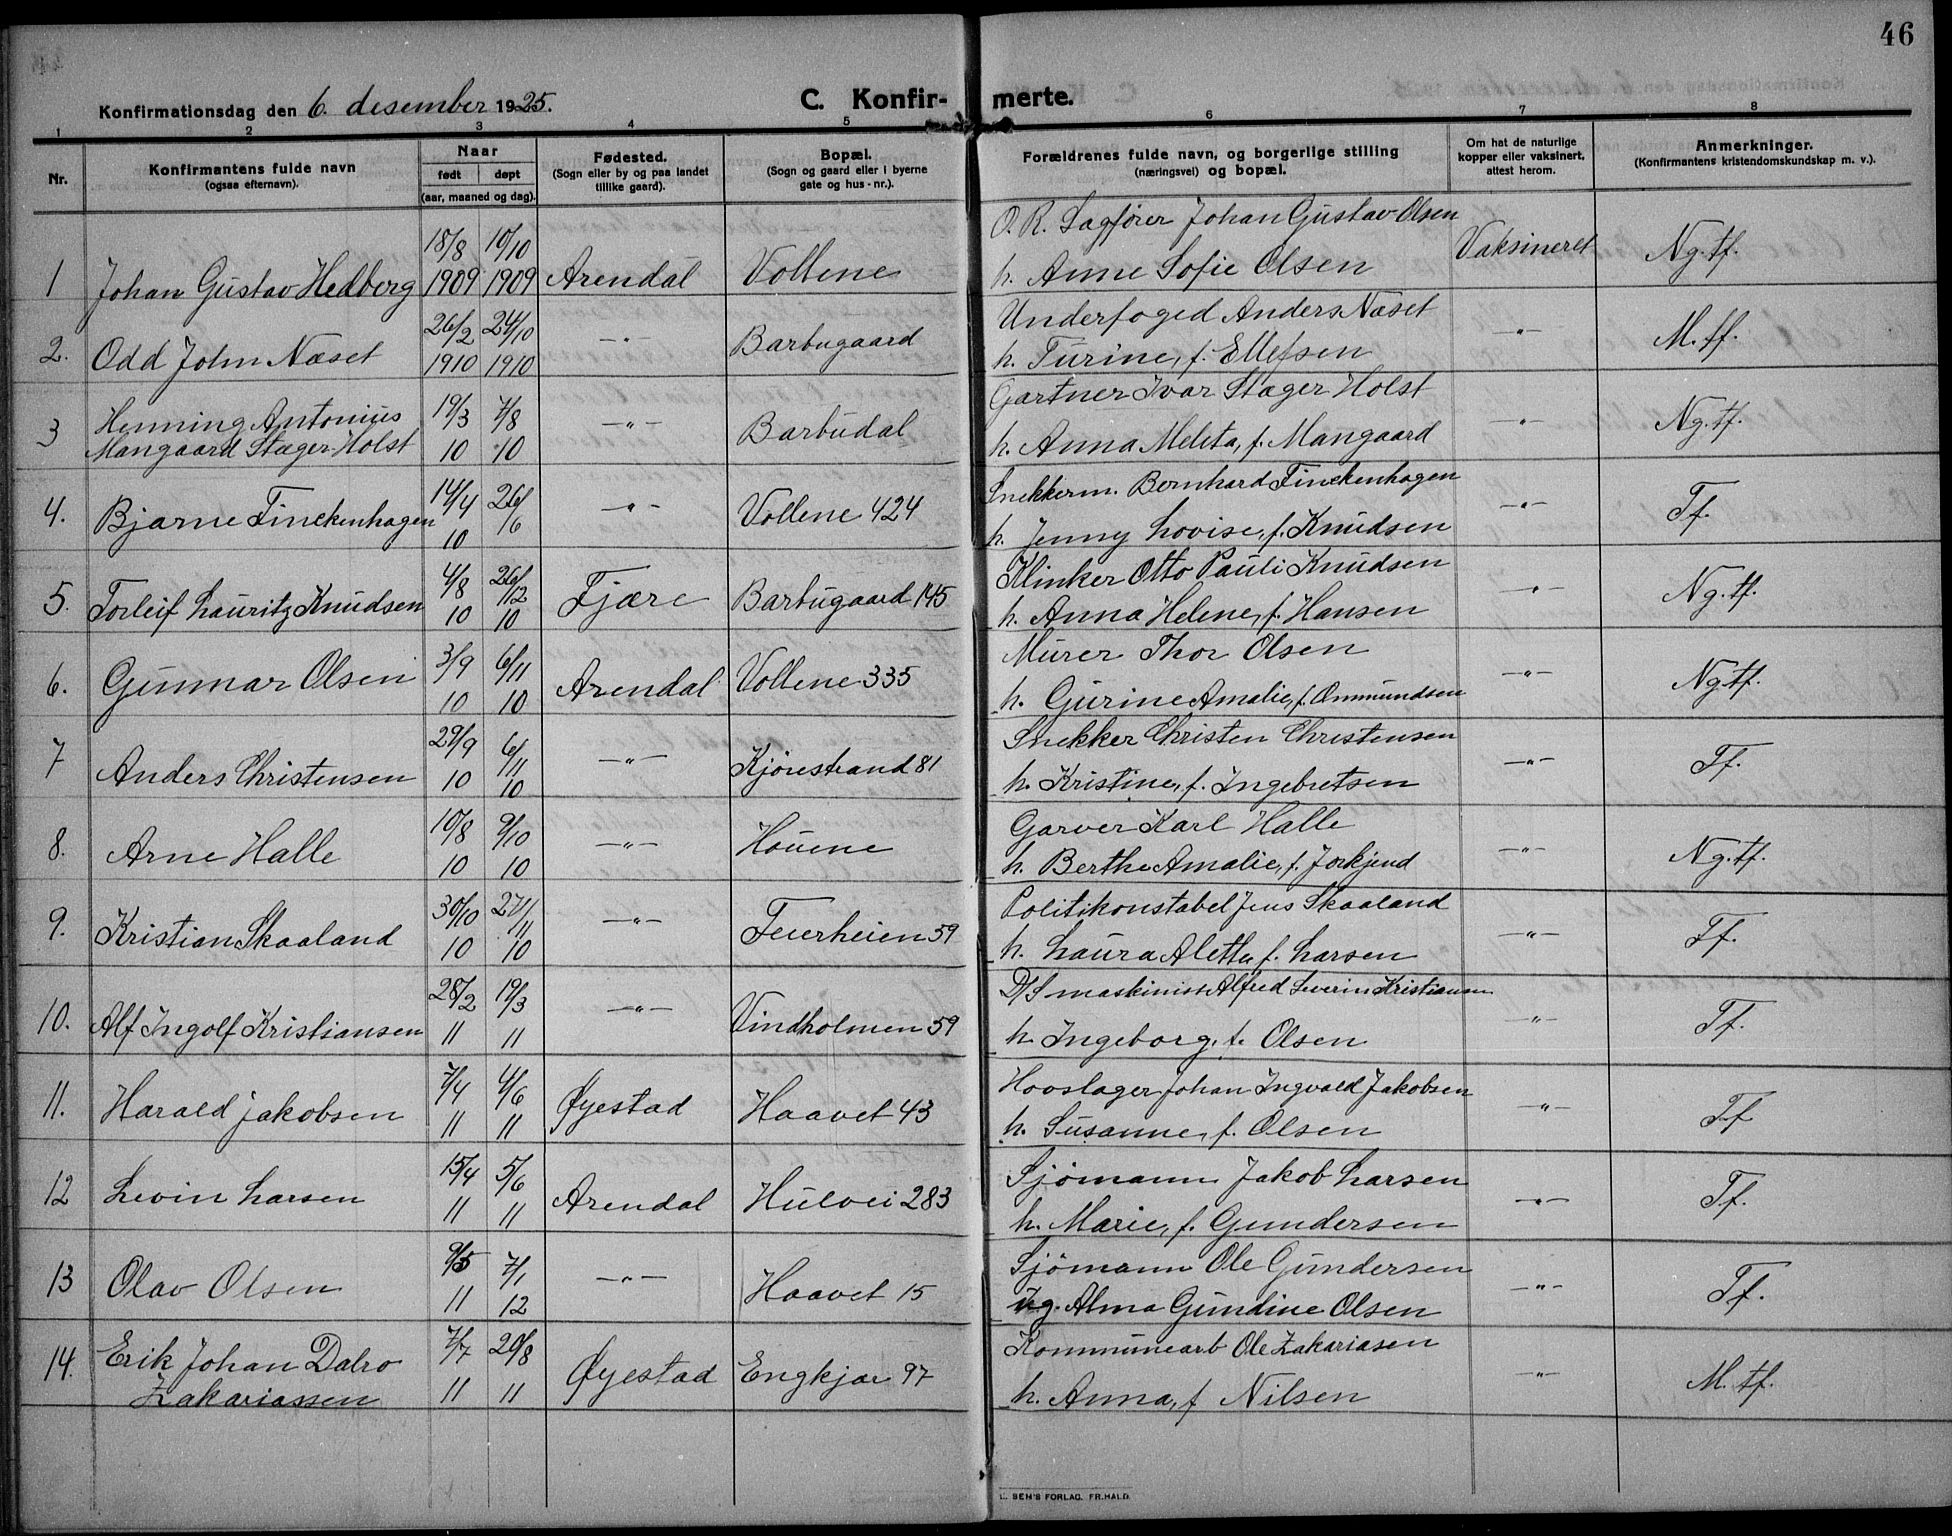 46
Konfirmationsdag den 6. desember 1925.
C. Konfirmerte.
1 2 3 4 5 6 7 8
Nr.
Konfirmantens fulde navn
(ogsaa efternavn).
Naar
født døpt
(aar, maaned og dag).
Fødested.
(Sogn eller by og paa landet
tillike gaard).
Bopæl.
(Sogn og gaard eller i byerne
gate og hus-nr.).
Forældrenes fulde navn, og borgerlige stilling
(næringsvei) og bopæl.
Om hat de naturlige
kopper eller vaksinert,
attest herom.
Anmerkninger.
(Konfirmantens kristendomskundskap m. v.).
O. R. Sagfører Johan Gustav Olsen
18/8 10/10
1 Johan Gustav Hedberg 1909 1909 Arendal Vollene h. Anne Sofie Olsen Vaksineret Ng. tf.
26/2 24/10 Underfoged Anders Næset
2. Odd John Næset 1910 1910 —„— Barbugaard h. Turine, f. Ellefsen —„— M. tf.
Henning Antonius 19/3 7/8 Gartner Ivar Stæger Holst
3 Mangaard Stæger-Holst 10 10 —„— Barbudal h. Anna Meleta, f. Mangaard —„— Ng. tf.
14/4 26/6 Snekkerm. Bernhard Finckenhagen
4. Bjarne Finckenhagen 10 —„— Vollene 424 h. Jenny Lovise, f. Knudsen —„— Tf.
4/8 26/12 Klinker Otto Pauli Knudsen
5. Torleif Lauritz Knudsen 10 10 Fjære Barbugaard 145 h. Anna Helene, f. Hansen —„— Ng. tf.
3/9 6/11 Murer Thor Olsen
6. Gunnar Olsen 10 10 Arendal Vollene 335 h. Gurine Amalie, f. Ommundsen —„— Ng. tf.
29/9 6/11 Snekker Christen Christensen
7 Anders Christensen 10 10 —„— Kjørestrand 81 h. Kristine, f. Ingebretsen —„— Tf.
10/8 9/10 Garver Karl Halle
8. Arne Halle 10 10 —„— Houene h. Berthe Amalie, f. Jorkjend —„— Ng. tf.
30/10 27/11 Politikonstabel Jens Skaaland
9. Kristian Skaaland 10 10 —„— Feierheien 59 h. Laura Aletta, f. Larsen —„— Tf.
28/2 19/3 D/S maskinist Alfred Severin Kristiansen
10. Alf Ingolf Kristiansen 11 11 —„— Vindholmen 59 h. Ingeborg, f. Olsen —„— Tf.
7/4 4/6 Hovslager Johan Ingvald Jakobsen
11. Harald Jakobsen 11 11 Øyestad Haavet 43 h. Susanne, f. Olsen —„— Tf
15/4 5/6 Sjømann Jakob Larsen
12 Levin Larsen 11 11 Arendal Hulvei 283 h. Marie, f. Gundersen —„— Tf.
9/5 7/1 Sjømann Ole Gundersen
13 Olav Olsen 11 12 —„— Haavet 15 ug. Alma Gundine Olsen —„— Tf.
Erik Johan Dalro 7/7 20/8 Kommunearb Ole Zakariasen
14. Zakariassen 11 11 Øyestad Engkjær 97 h. Anna, f Nilsen —„— M. tf.
SEN'S FORLAG. FR.HALD.